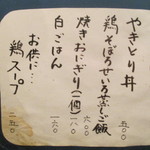 やきとり丼
五〇〇
鶏そぼろせいろ蒸しご飯
六〇〇
焼きおにぎり(二個)
二八〇
白ごはん
一六〇
お供に…
鶏スープ
二五〇